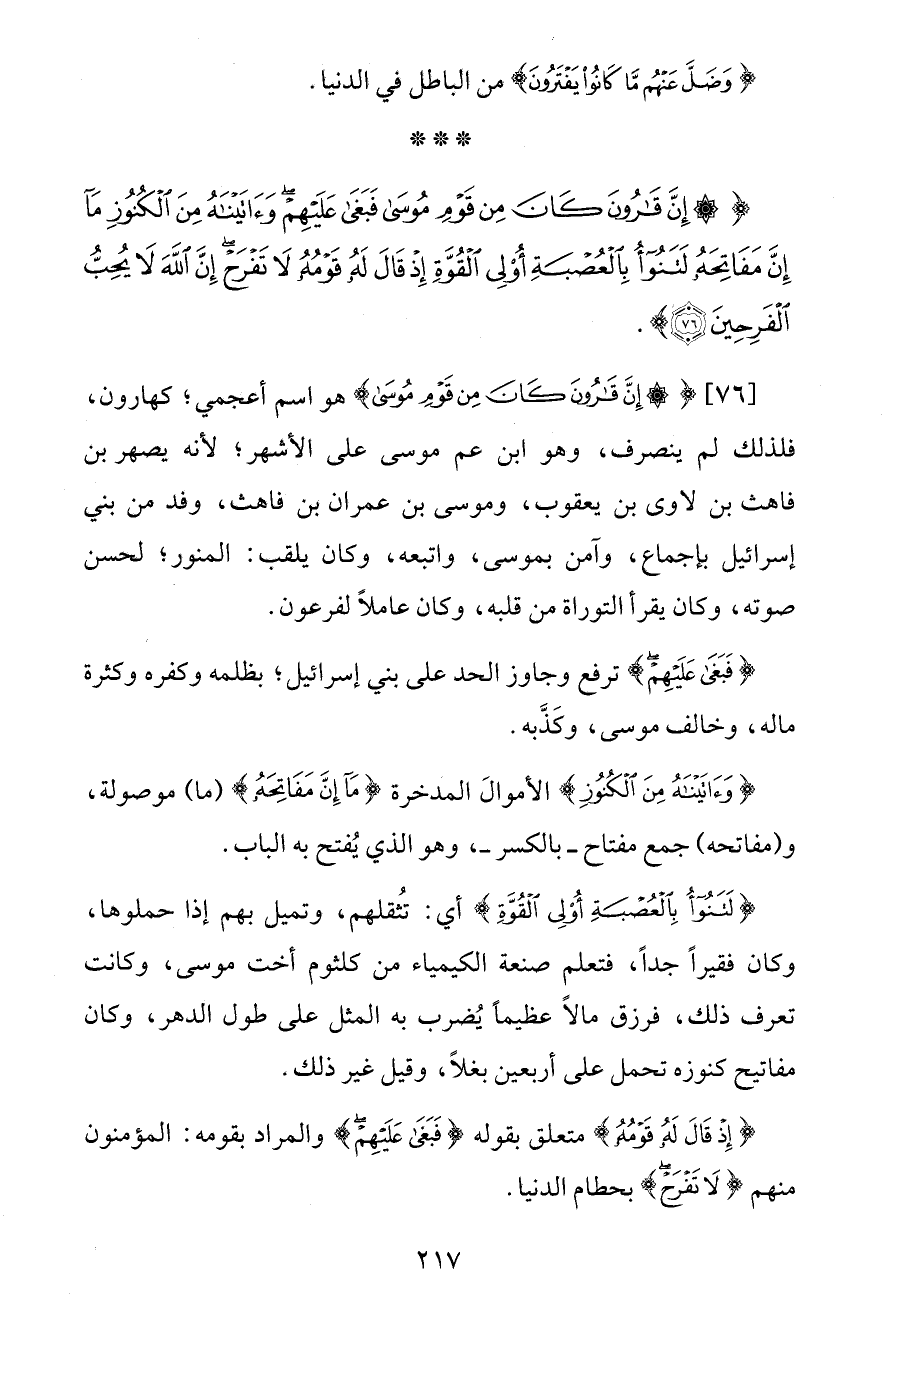 ﴿ وَضَلَّ عَنْهُم مَّا كَانُوا۟ يَفْتَرُونَ﴾ من الباطل في الدنيا.
* * *
﴿ ۞ إِنَّ قَٰرُونَ كَانَ مِن قَوْمِ مُوسَىٰ فَبَغَىٰ عَلَيْهِمْ ۖ وَءَاتَيْنَٰهُ مِنَ ٱلْكُنُوزِ مَآ
إِنَّ مَفَاتِحَهُۥ لَتَنُوٓأُ بِٱلْعُصْبَةِ أُو۟لِى ٱلْقُوَّةِ إِذْ قَالَ لَهُۥ قَوْمُهُۥ لَا تَفْرَحْ ۖ إِنَّ ٱللَّهَ لَا يُحِبُّ
ٱلْفَرِحِينَ ﴿٧٦﴾ ﴾.
[٧٦] ﴿ ۞ إِنَّ قَٰرُونَ كَانَ مِن قَوْمِ مُوسَىٰ﴾ هو اسم أعجمي؛ كهارون،
فلذلك لم ينصرف، وهو ابن عم موسى على الأشهر؛ لأنه يصهر بن
فاهث بن لاوى بن يعقوب، وموسى بن عمران بن فاهث، وفد من بني
إسرائيل بإجماع، وآمن بموسى، واتبعه، وكان يلقب: المنور؛ لحسن
صوته، وكان يقرأ التوراة من قلبه، وكان عاملاً لفرعون.
﴿ فَبَغَىٰ عَلَيْهِمْ ۖ﴾ ترفع وجاوز الحد على بني إسرائيل؛ بظلمه وكفره وكثرة
ماله، وخالف موسى، وكَذَّبه.
﴿ وَءَاتَيْنَٰهُ مِنَ ٱلْكُنُوزِ ﴾ الأموالَ المدخرة ﴿ مَآ إِنَّ مَفَاتِحَهُۥ ﴾ (ما) موصولة،
و(مفاتحه) جمع مفتاح ـ بالكسر ـ، وهو الذي يُفتح به الباب.
﴿ لَتَنُوٓأُ بِٱلْعُصْبَةِ أُو۟لِى ٱلْقُوَّةِ ﴾ أي: تُثقلهم، وتميل بهم إذا حملوها،
وكان فقيراً جداً، فتعلم صنعة الكيمياء من كلثوم أخت موسى، وكانت
تعرف ذلك، فرزق مالاً عظيماً يُضرب به المثل على طول الدهر، وكان
مفاتيح كنوزه تحمل على أربعين بغلاً، وقيل غير ذلك.
﴿ إِذْ قَالَ لَهُۥ قَوْمُهُۥ ﴾ متعلق بقوله ﴿ فَبَغَىٰ عَلَيْهِمْ ۖ﴾ والمراد بقومه: المؤمنون
منهم ﴿ لَا تَفْرَحْ ۖ﴾ بحطام الدنيا.
٢١٧